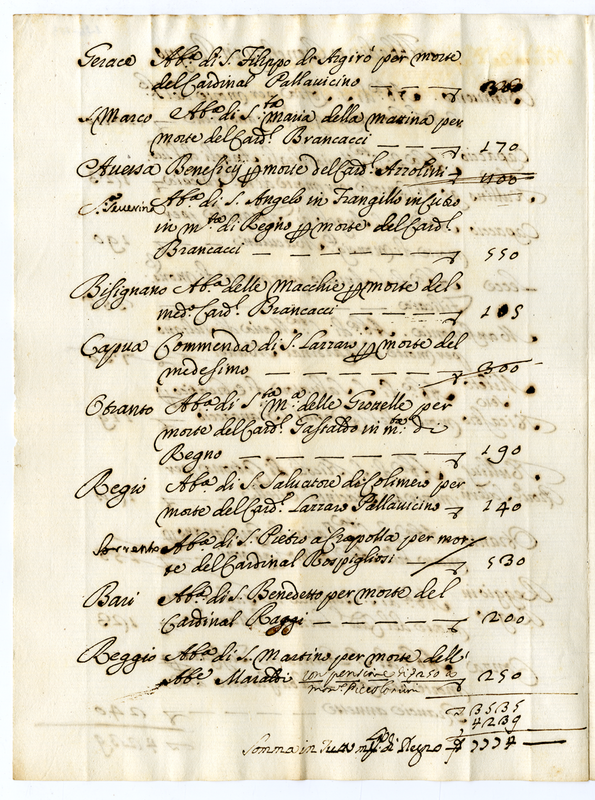 Gerace Ab.ª di S. Filippo d'Argirò per morte
del Cardinal Pallavicino
S. Marco Ab.ª di S.ta Maria della Matina per
morte del Card.l Brancacci 170
Aversa Beneficij p morte del Card.l Azzolini 1100
S. Severina Ab.ª di S. Angelo in Frangillo in Cutro
in m.ta di Regno p morte del Card.l
Brancacci 550
Bisignano Ab.ª delle Macchie p morte del
med.º Card.l Brancacci 105
Capua Commenda di S. Lazzaro p morte del
medesimo 300
Otranto Ab.ª di S.ta M.ª delle per
morte del Card.l Gastaldo in m.ta di
Regno 190
Regio Ab.ª di S. Salvatore di Colimero per
morte del Card.l Lazzaro Pallavicino 140
Sorrento Ab.ª di S. Pietro a Crapolla per mor-
te del Cardinal Rospigliosi 530
Bari Ab.ª di S. Benedetto per morte del
Cardinal Raggi 200
Reggio Ab.ª di S. Martino per morte dell'
Abb.e Maraldi con pensione di 250 a
mons.r Piccolomini 250
3535
4239
Somma in tutto di Regno 7774